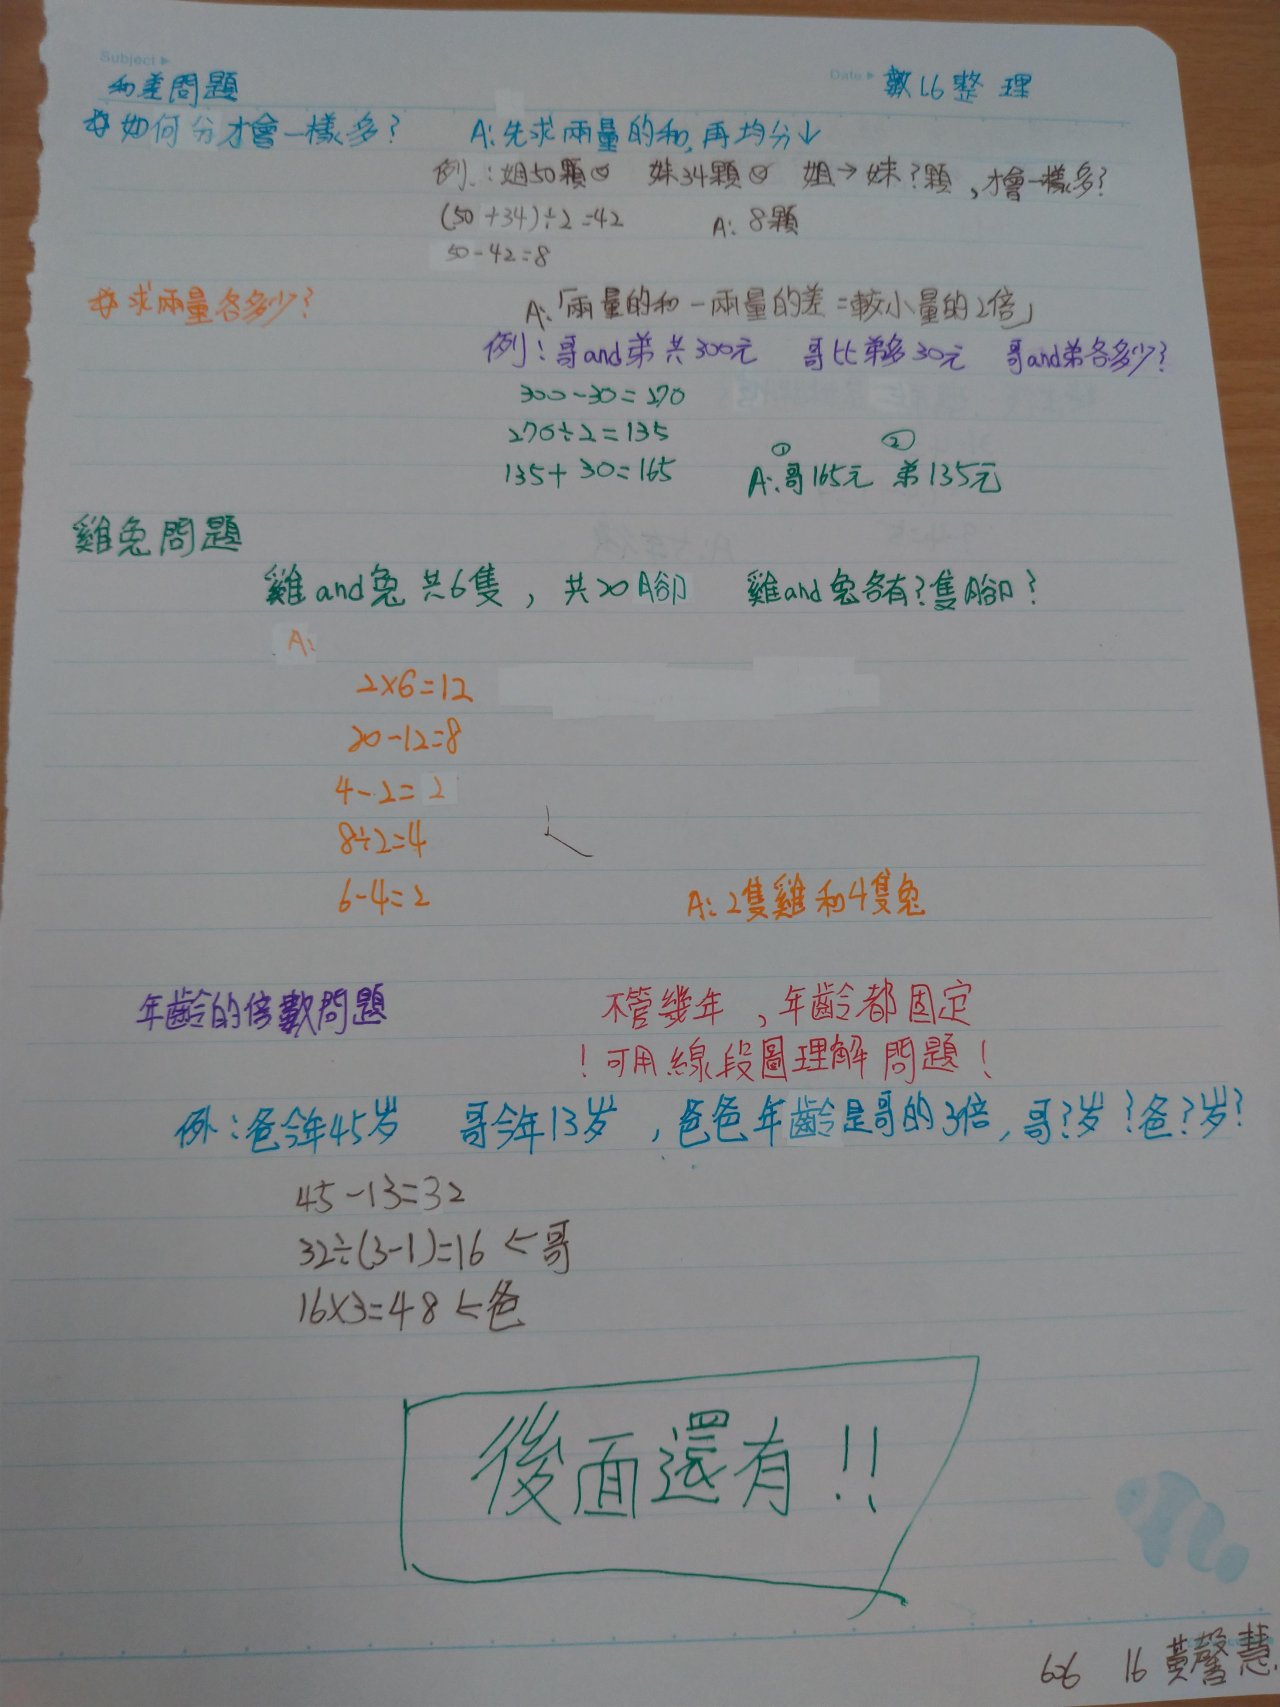 Subject ▶
Date ▶ 數L6整理
和差問題
如何分才會一樣多? A:先求兩量的和,再均分↓
例:姐50顆 妹34顆 姐→妹?顆,才會一樣多?
(50+34)÷2=42 A:8顆
50-42=8
求兩量各多少? A:「兩量的和-兩量的差=較小量的2倍」
例:哥and弟共300元 哥比弟多30元 哥and弟各多少?
300-30=270
270÷2=135
135+30=165 A:①哥165元 ②弟135元
雞兔問題
雞and兔共6隻,共20腳 雞and兔各有?隻腳?
A:
2×6=12
20-12=8
4-2=2
8÷2=4
6-4=2 A:2隻雞和4隻兔
年齡的倍數問題 不管幾年,年齡都固定
!可用線段圖理解問題!
例:爸今年45岁 哥今年13岁,爸爸年齡是哥的3倍,哥?岁?爸?岁?
45-13=32
32÷(3-1)=16 ←哥
16×3=48 ←爸
後面還有!!
606 16 黃馨慧